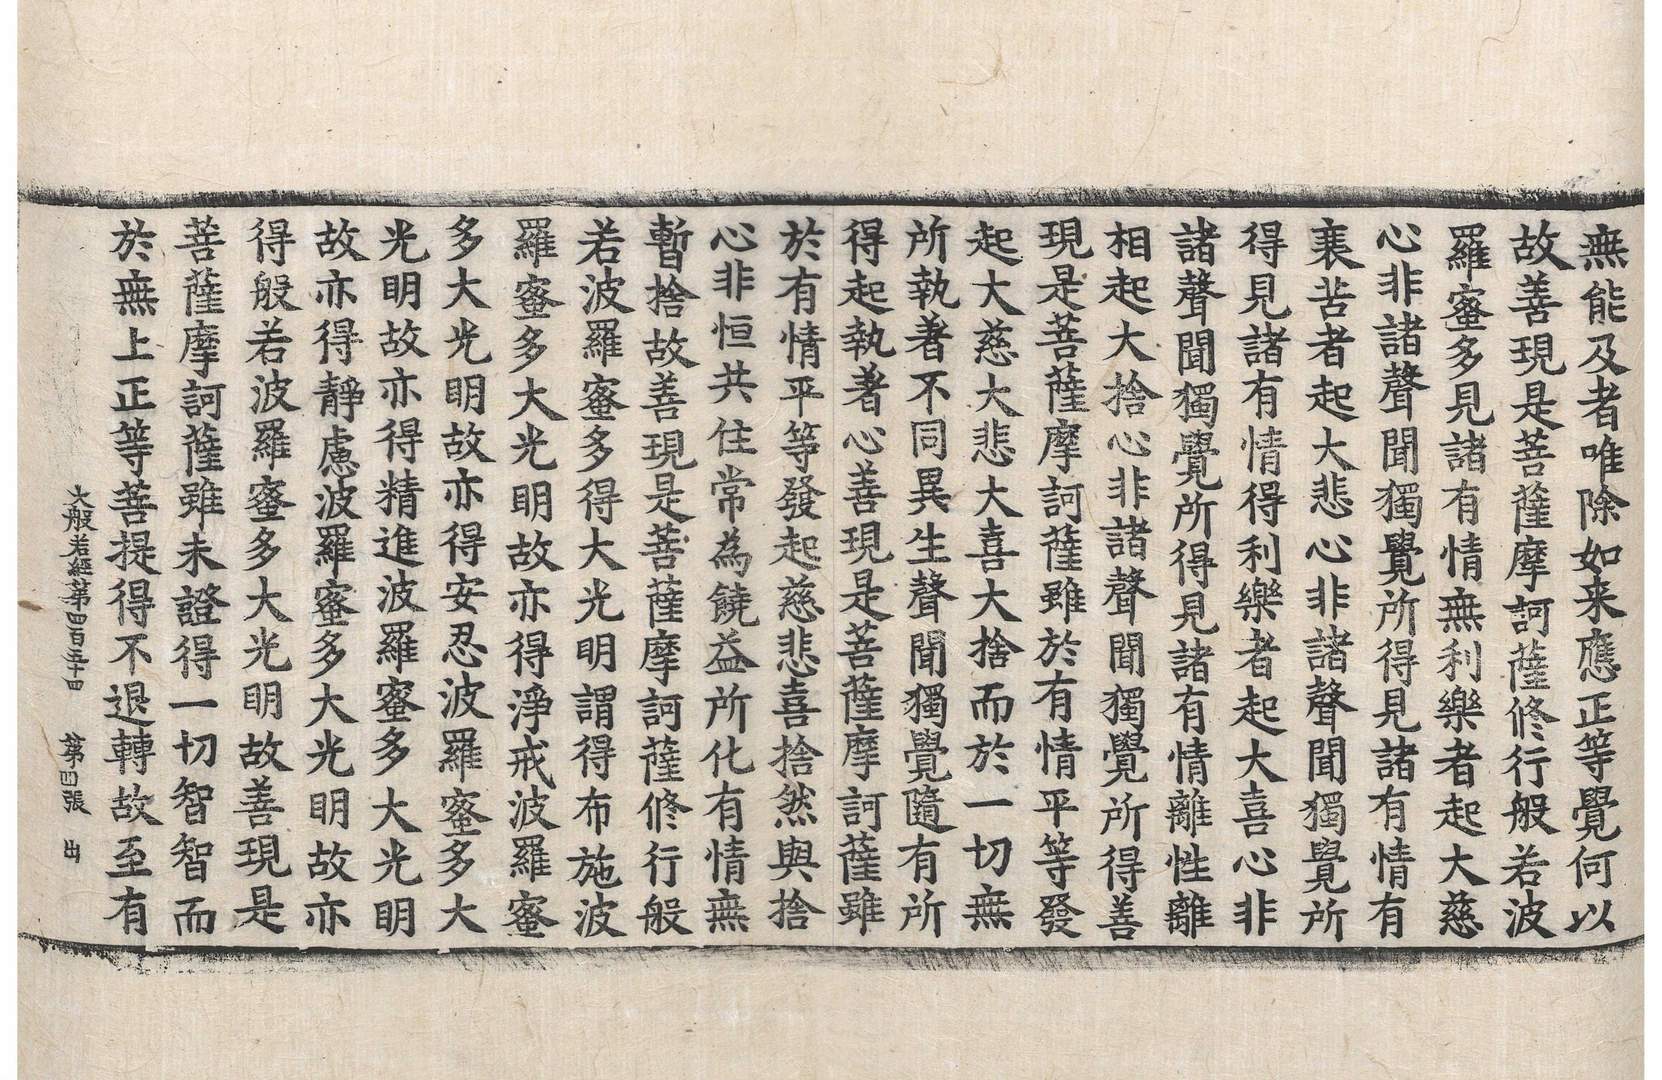 無能及者唯除如来應正等覺何以
故善現是菩薩摩訶薩修行般若波
羅蜜多見諸有情無利樂者起大慈
心非諸聲聞獨覺所得見諸有情有
衰苦者起大悲心非諸聲聞獨覺所
得見諸有情得利樂者起大喜心非
諸聲聞獨覺所得見諸有情離性離
相起大捨心非諸聲聞獨覺所得善
現是菩薩摩訶薩雖於有情平等發
起大慈大悲大喜大捨而於一切無
所執著不同異生聲聞獨覺隨有所
得起執著心善現是菩薩摩訶薩雖
於有情平等發起慈悲喜捨然與捨
心非恒共住常為饒益所化有情無
暫捨故善現是菩薩摩訶薩修行般
若波羅蜜多得大光明謂得布施波
羅蜜多大光明故亦得淨戒波羅蜜
多大光明故亦得安忍波羅蜜多大
光明故亦得精進波羅蜜多大光明
故亦得靜慮波羅蜜多大光明故亦
得般若波羅蜜多大光明故善現是
菩薩摩訶薩雖未證得一切智智而
於無上正等菩提得不退轉故至有
大般若經第四百五十四 第四張 出